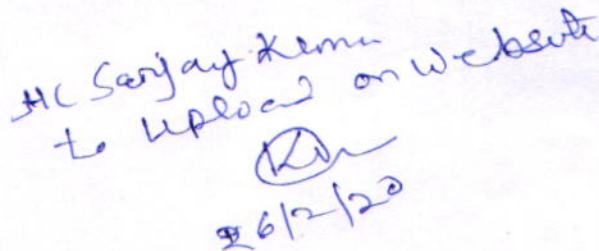 HC Sanjay Kumar
to Upload on Website
26/2/20